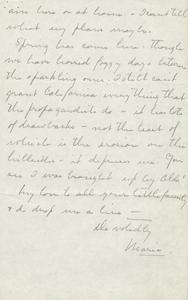 aim here or at home — I can't tell
what my plans may be.
Spring has come here — though
we have horrid foggy days between
the sparkling ones. I still can't
grant California everything that
the propagandists do — it has lots
of drawbacks — not the least of
which is the erosion on the
hillsides — it depresses me. You
see I was brought up by
My love to all your little family
& do drop me a line —
Devotedly
Marie